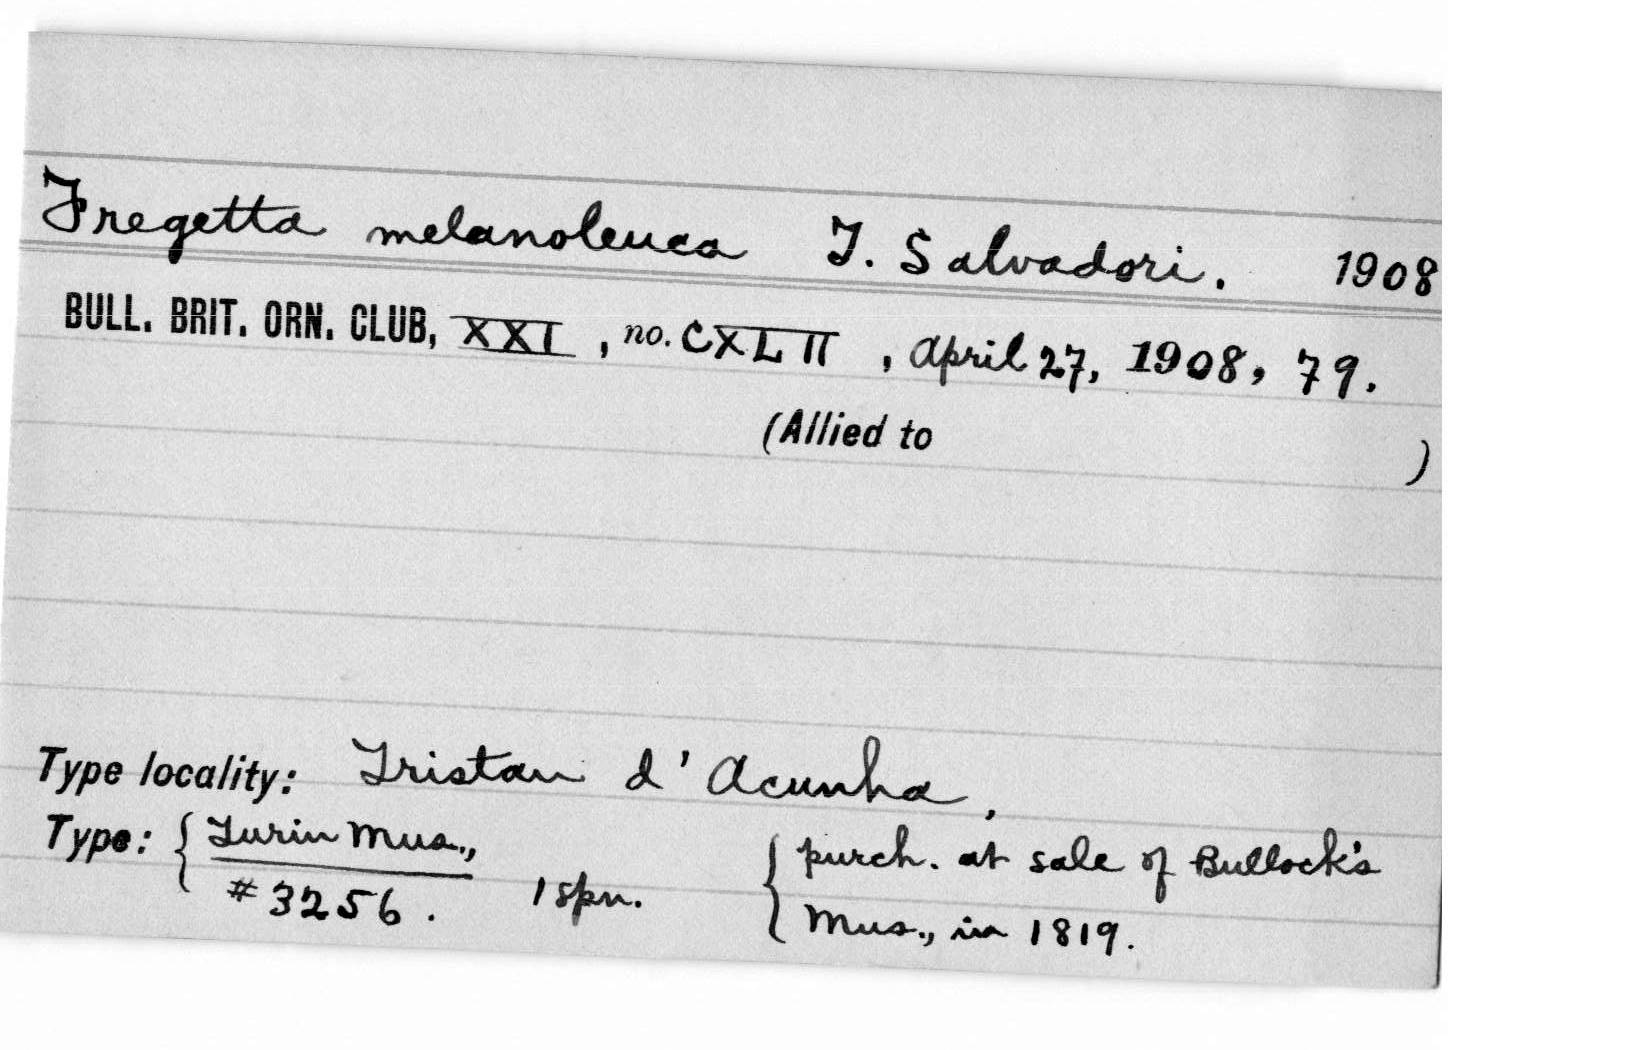 Fregetta melanoleuca T. Salvadori. 1908
BULL. BRIT. ORN. CLUB, XXI, no. CXLII, April 27, 1908, 79.
(Allied to )
Type locality: Tristan d'Acunha,
Type: { Turin Mus., 1 spn. { purch. at sale of Bullock's
#3256. Mus., in 1819.